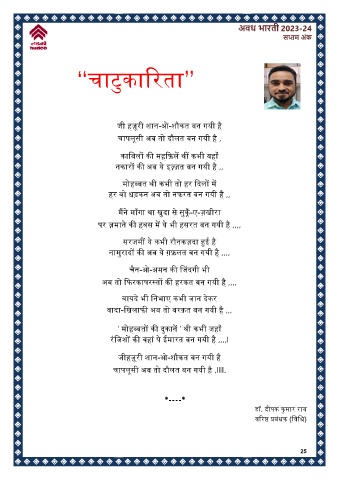 अवध भारती 2023-24
सप्तम अंक
हडको
hudco
“चाटुकारिता”
जी हजूरी शान-ओ-शौकत बन गयी है
चापलूसी अब तो दौलत बन गयी है .
काबिलों की महफ़िलें थीं कभी यहाँ
नकारों की अब ये इज़्ज़त बन गयी है ..
मोहब्बत थी कभी तो हर दिलों में
हर शै धड़कन अब तो नफरत बन गयी है ..
मैंने माँगा था खुदा से सुकूँ-ए-ज़खीरा
पर ज़माने की हवस में ये भी हसरत बन गयी है ....
सरजमीं ये कभी रौनकज़दा हुई है
नामुरादों की अब ये सफ़लत बन गयी है ....
चैन-ओ-अमन की जिंदगी थी
अब तो फिरकापरस्तों की हरकत बन गयी है ....
वायदे भी निभाए कभी जान देकर
वादा-खिलाफी अब तो बरकत बन गयी है ...
' मोहब्बतों की दुकानें ' थी कभी जहाँ
रंजिशों की वहां पे ईमारत बन गयी है ....।
जीहजूरी शान-ओ-शौकत बन गयी है
चापलूसी अब तो दौलत बन गयी है .।।।.
*----*
डॉ. दीपक कुमार राय
वरिष्ठ प्रबंधक (विधि)
25